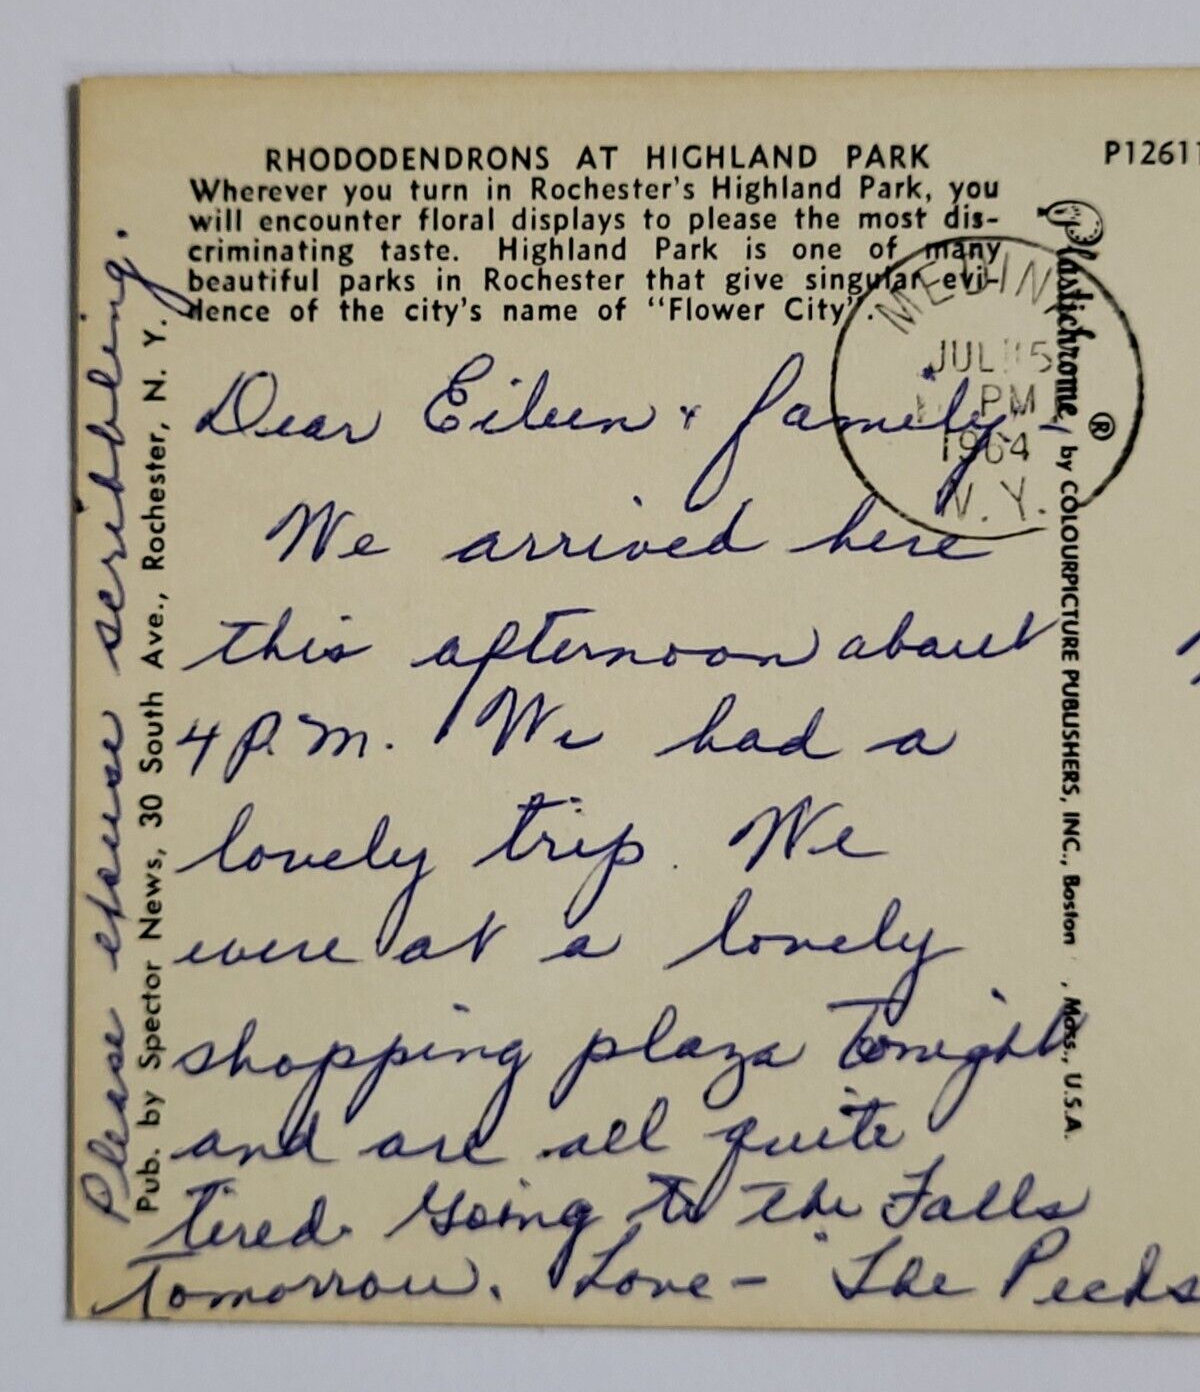 RHODODENDRONS AT HIGHLAND PARK
P12611
Wherever you turn in Rochester's Highland Park, you
will encounter floral displays to please the most dis-
criminating taste. Highland Park is one of many
beautiful parks in Rochester that give singular evi-
dence of the city's name of "Flower City".
MEDINA
JUL 15
PM
1964
N.Y.
Dear Eileen & family -
We arrived here
this afternoon about
4 P.M. We had a
lovely trip. We
were at a lovely
shopping plaza tonight
and are all quite
tired. Going to the Falls
tomorrow. Love - The Pecks
Please excuse scribbling.
Pub. by Spector News, 30 South Ave., Rochester, N. Y.
Plastichrome ® by COLOURPICTURE PUBLISHERS, INC., Boston , Mass., U.S.A.